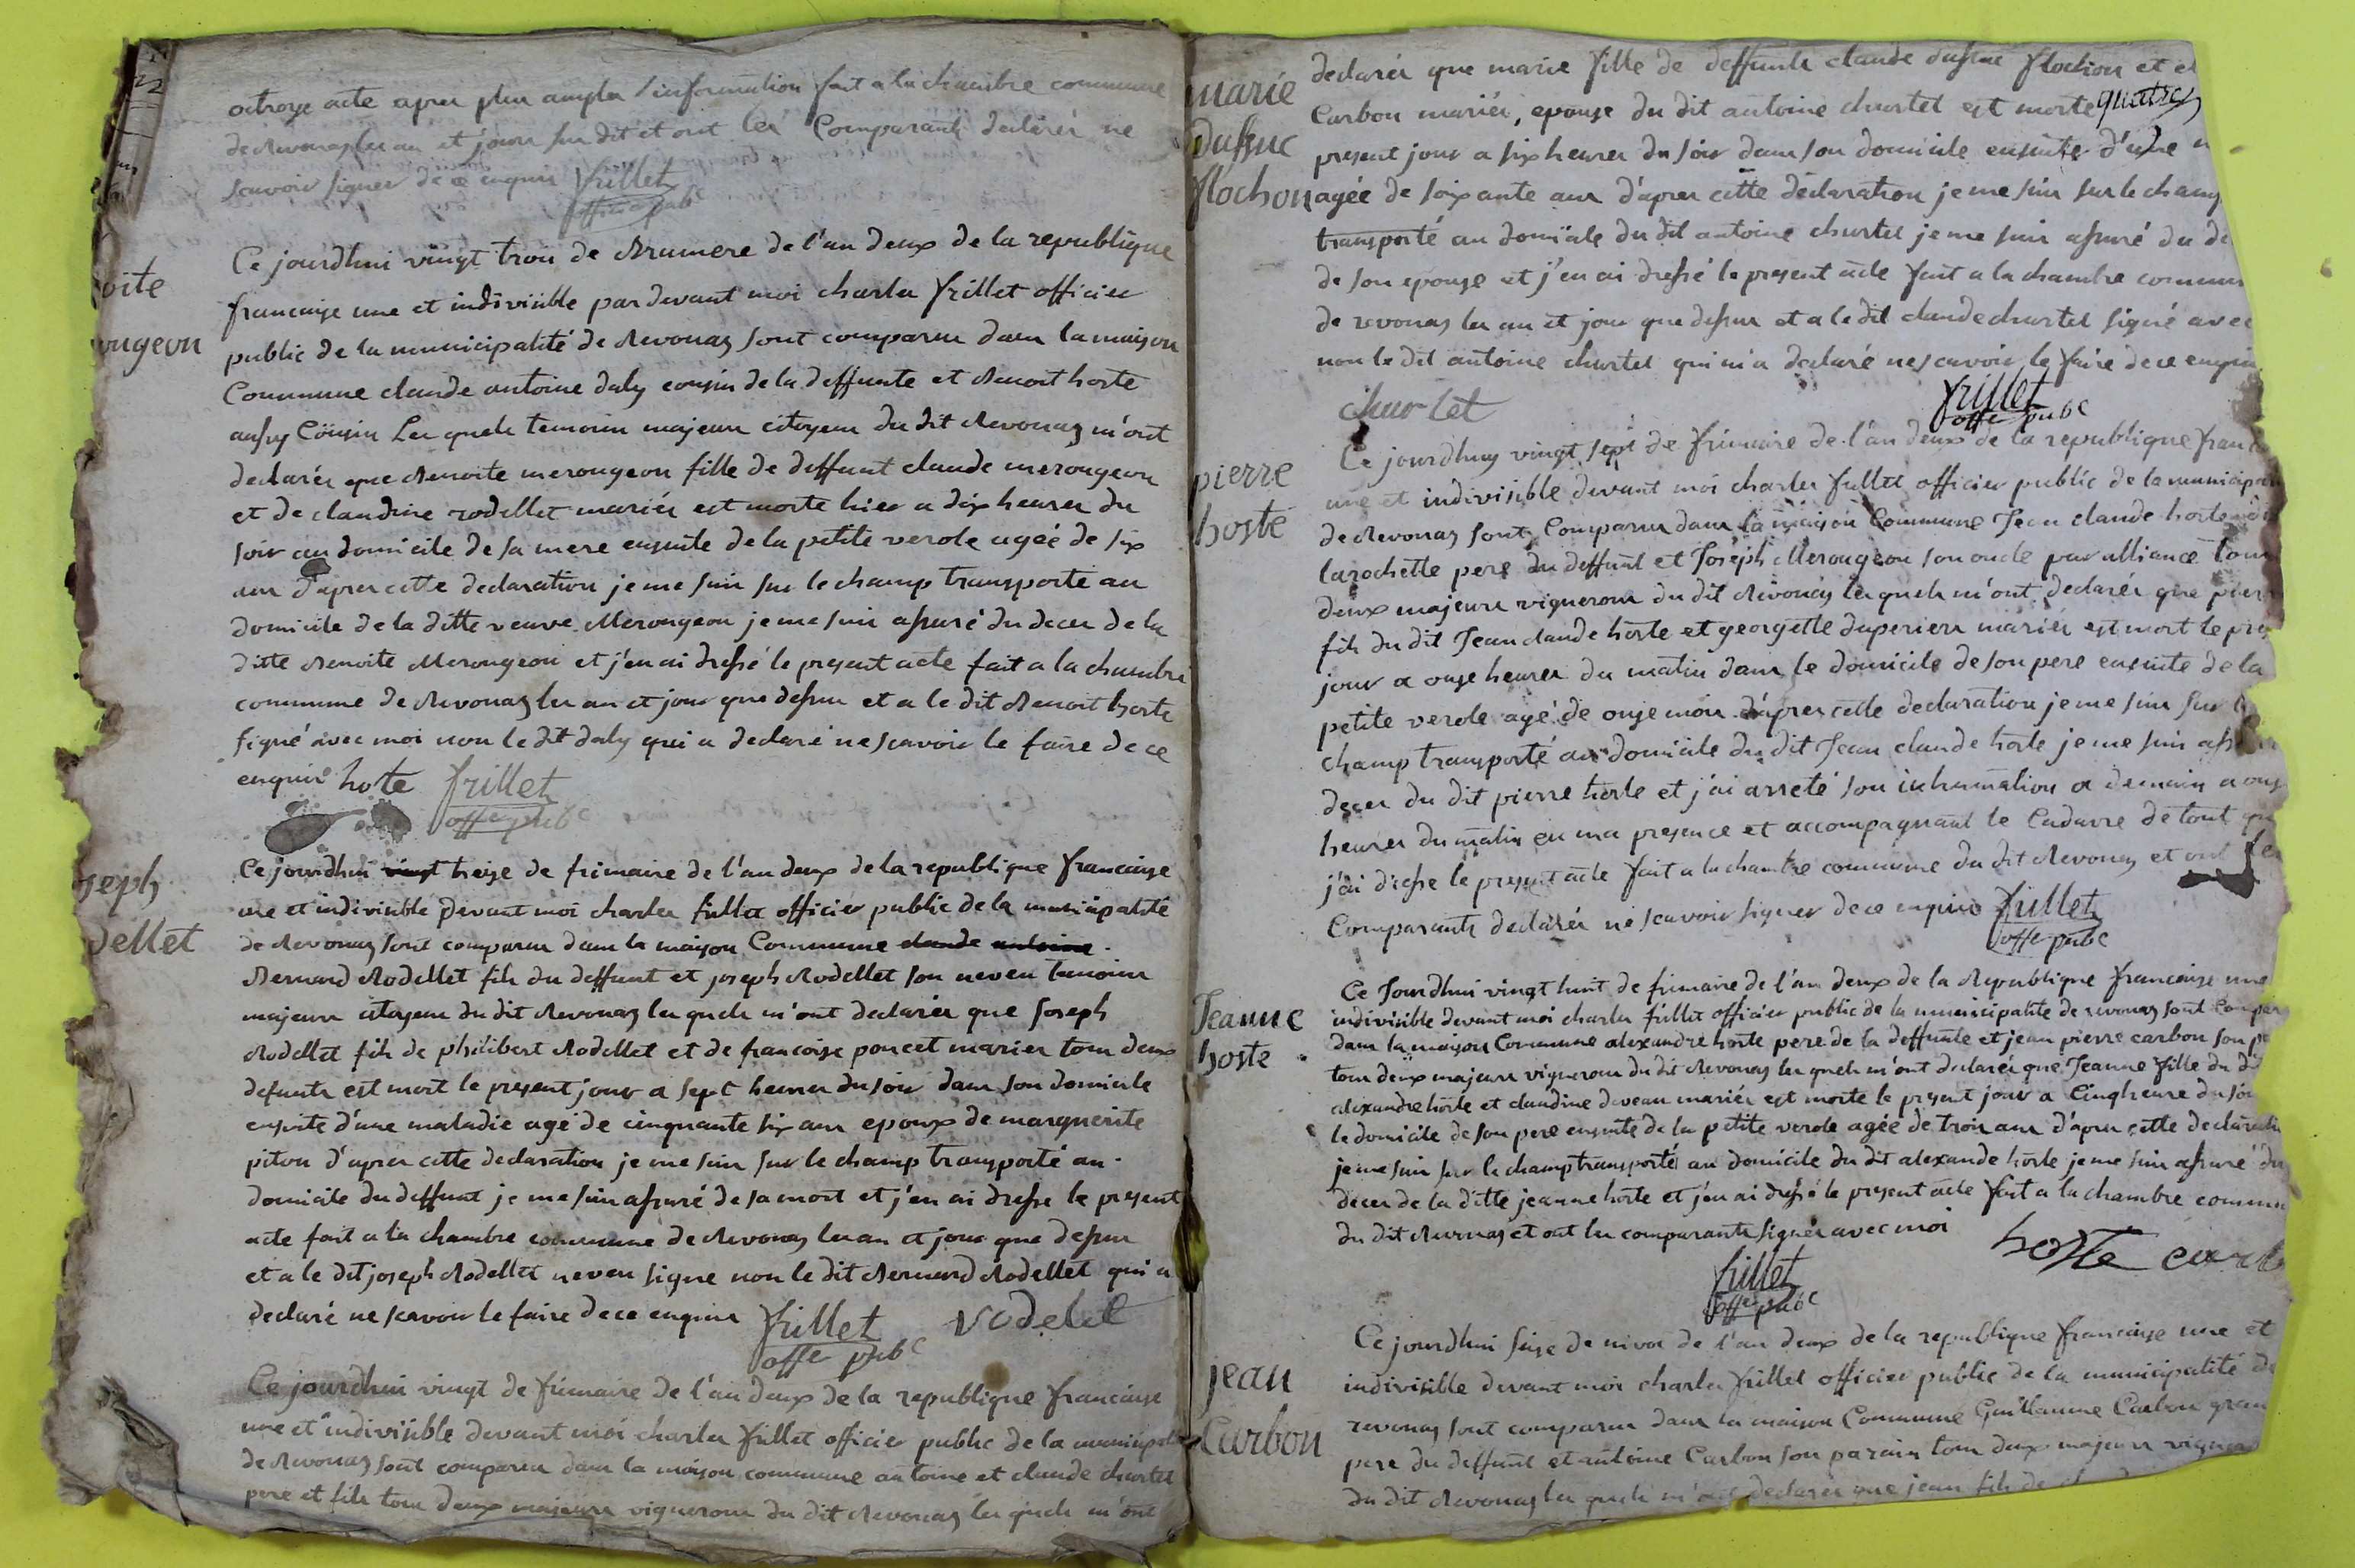 octroye acte apres plus ample l'information fait a la chambre commune
de Revonas les an et jours susdit et ont les Comparants declarés ne
scavoir signer de ce enquis frillet
offier pubc
oite
ougeon
Ce jourdhui vingt trois de Brumere de l'an deux de la republique
francaise une et indivisible par devant moi charles frillet officier
public de la municipalité de Revonas sont comparus dans la maison
Commune claude antoine daly cousin de la deffunte et Benoit hoste
aussy Cousin Les quels temoins majeurs citoyens du dit Revonas m'ont
declarés que Benoite merougeon fille de deffunt claude merougeon
et de claudine rodellet mariés est morte hier a dix heures du
soir au domicile de sa mere ensuite de la petite verole agée de six
ans d'apres cette declaration je me suis sur le champ transporté au
domicile de la ditte veuve Merougeon je me suis assuré du deces de la
ditte Benoite Merougeon et j'en ai dressé le present acte fait a la chambre
commune de Revonas les an et jour que dessus et a le dit Benoit hoste
signé avec moi non le dit daly qui a declaré ne scavoir le faire de ce
enquis hote frillet
offe pubc
oseph
dellet
Ce jourdhui vingt treize de frimaire de l'an deux de la republique francaise
une et indivisible devant moi charles frillet officier public de la municipalité
de Revonas sont comparus dans la maison Commune claude antoine
Bernard Rodellet fils du deffunt et joseph Rodellet son neveu temoins
majeurs citoyens du dit Revonas les quels m'ont declarés que Joseph
Rodellet fils de philibert Rodellet et de francoise poncet mariés tous deux
defunts est mort le present jour a sept heures du soir dans son domicile
ensuite d'une maladie agé de cinquante six ans epoux de marguerite
piton d'apres cette declaration je me suis sur le champ transporté au
domicile du deffunt je me suis assuré de sa mort et j'en ai dresse le present
acte fait a la chambre commune de Revonas les an et jour que dessus
et a le dit joseph Rodellet neveu signe non le dit Bernard Rodellet qui a
declaré ne scavoir le faire de ce enquis frillet rodelet
offe pubc
Ce jourdhui vingt de frimaire de l'an deux de la republique francaise
une et indivisible devant moi charles frillet officier public de la municipali
de Revonas sont comparus dans la maison commune antoine et claude churlet
pere et fils tous deux majeurs vignerons du dit Revonas les quels m'ont
marie
flochon
declarés que marie fille de deffunts claude flochon et
Carbon mariés, epouse du dit antoine churlet est morte
present jour a six heures du soir dans son domicile ensuite d'une
agée de soixante ans d'apres cette déclaration je me suis sur le champ
transporté au domicile du dit antoine churlet je me suis assuré du
de son epouse et j'en ai dressé le present acte fait a la chambre commun
de revonas les an et jour que dessus et a le dit claude churlet signé avec
non le dit antoine churlet qui m'a declaré ne scavoir le faire de ce enquis
churlet frillet
offe pubc
pierre
hoste
Ce jourdhuy vingt sept de frimaire de l'an deux de la republique franc
une et indivisible devant moi charles frillet officier public de la municipa
de Revonas sont Comparus dans la maison Commune Jean claude hoste dit
larochette pere du deffunt et Joseph Merougeon son oncle par alliance tous
deux majeurs vignerons du dit Revonas les quels m'ont declarés que pier
fils du dit Jean claude hoste et georgette duperier mariés est mort le pre
jour a onze heures du matin dans le domicile de son pere ensuite de la
petite verole agé de onze mois d'apres cette declaration je me suis sur le
champ transporté au domicile du dit Jean claude hoste je me suis ass
deces du dit pierre hoste et j'ai arreté son inhumation a demain a onz
heures du matin en ma presence et accompagnant le Cadavre de tout quoi
j'ai dresse le present acte fait a la chambre commune du dit Revonas et ont les
Comparants declarés ne scavoir signer de ce enquis frillet
offe pubc
Jeanne
hoste
Ce Jourdhui vingt huit de frimaire de l'an deux de la Republique francaise une
indivisible devant moi charles frillet officier public de la municipalité de revonas sont Compar
dans la maison Commune alexandre hoste pere de la deffunte et jean pierre carbon son
tous deux majeurs vignerons du dit Revonas les quels m'ont declarés que Jeanne fille du dit
alexandre hoste et claudine deveau mariés est morte le present jour a Cinq heure du soi
le domicile de son pere ensuite de la petite verole agée de trois ans d'apres cette declarati
je me suis sur le champ transporté au domicile du dit alexandre hoste je me suis assuré du
deces de la ditte jeanne hoste et j'en ai dressé le present acte fait a la chambre commun
du dit Revonas et ont les comparants signés avec moi hoste carb
frillet
offe pubc
jean
Carbon
Ce jourdhui seize de nivos de l'an deux de la republique francaise une et
indivisible devant moi charles frillet officier public de la municipalité de
revonas sont comparus dans la maison Commune Guillaume Carbon gran
pere du deffunt et antoine Carbon son parain tous deux majeurs vigner
du dit Revonas les quels m'ont declarés que jean fils de